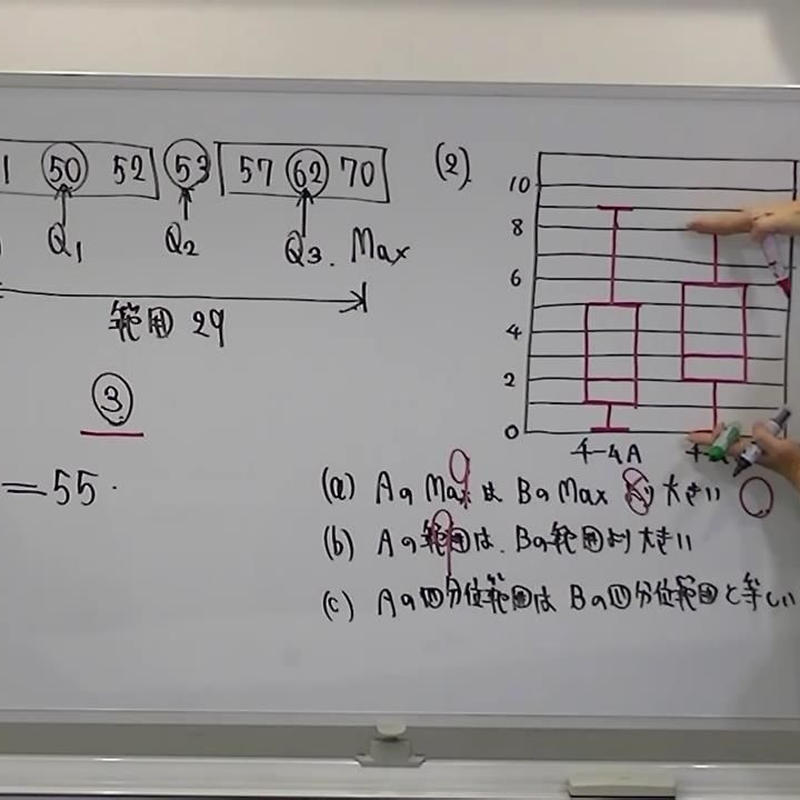 1 50 52 53 57 62 70
Q1 Q2 Q3. Max
範囲 29
③
=55.
(2).
10
8
6
4
2
0
チ-ムA
(a) AのMaxは BのMax より大きい ○
(b) Aの範囲は、Bの範囲より大きい
(c) Aの四分位範囲は Bの四分位範囲と等しい